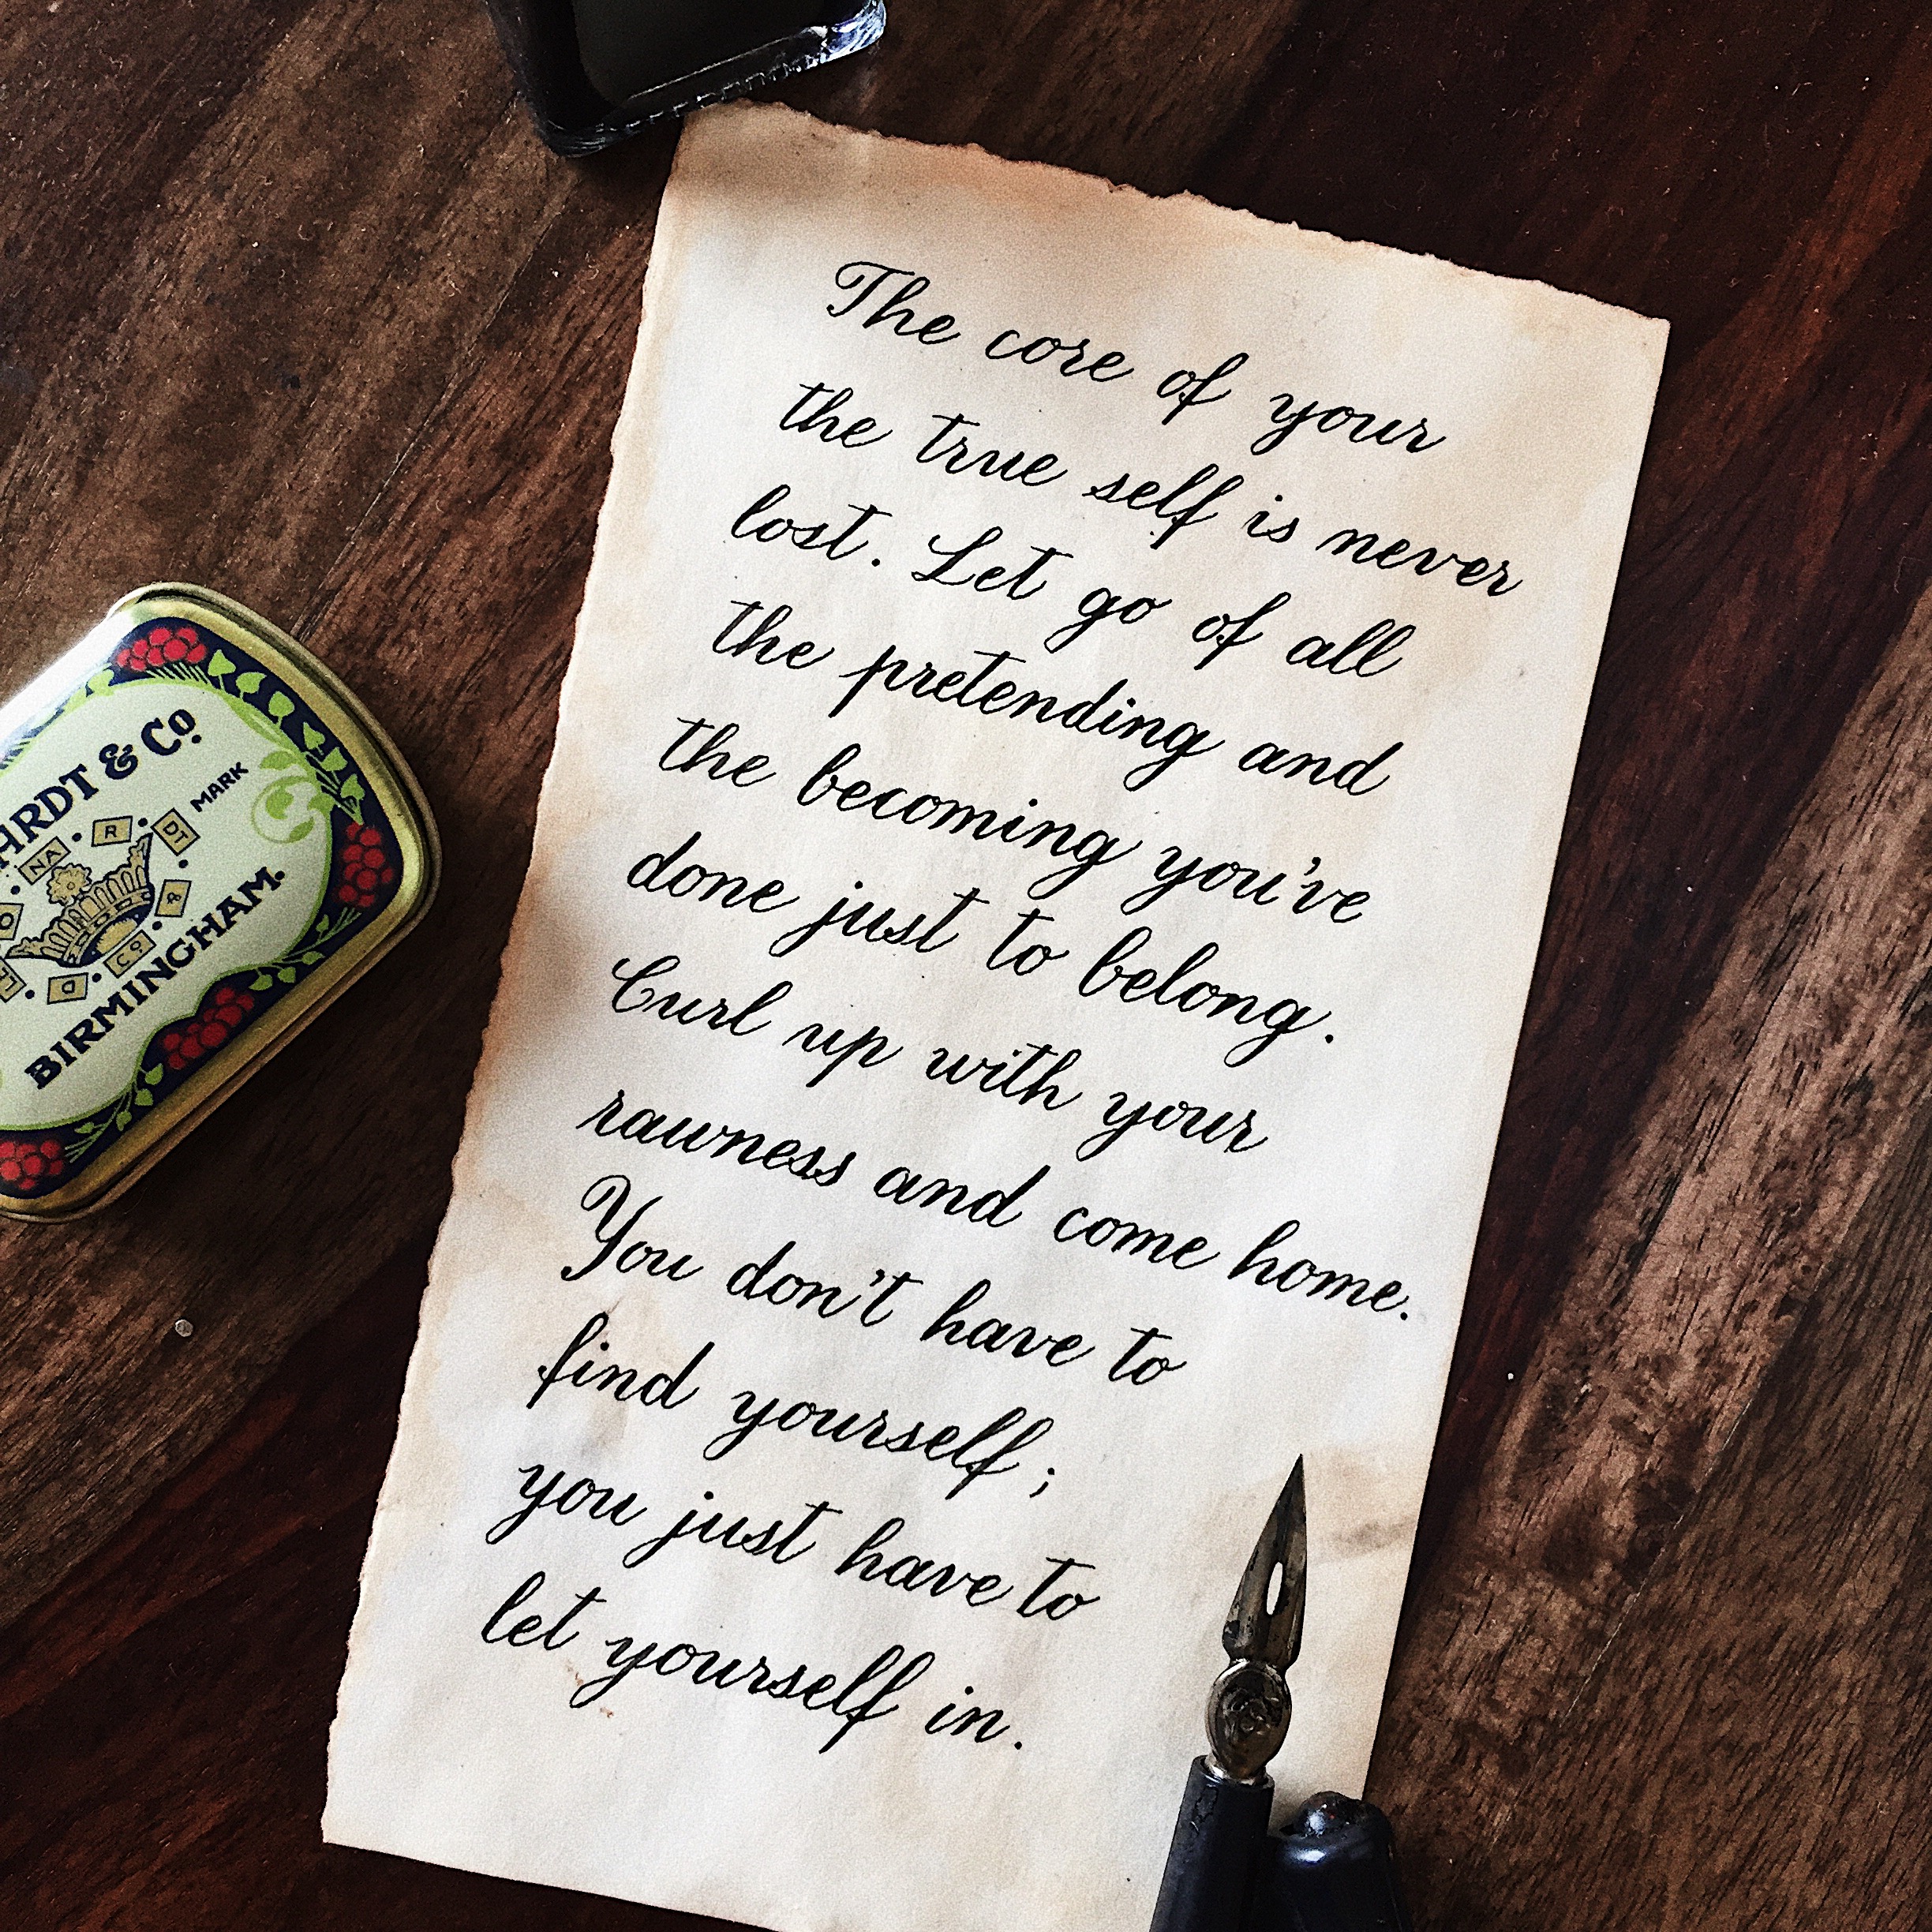 The core of your
the true self is never
lost. Let go of all
the pretending and
the becoming you've
done just to belong.
Curl up with your
rawness and come home.
You don't have to
find yourself;
you just have to
let yourself in.
ARDT & Co.
MARK
NA R DT
& Co
BIRMINGHAM.